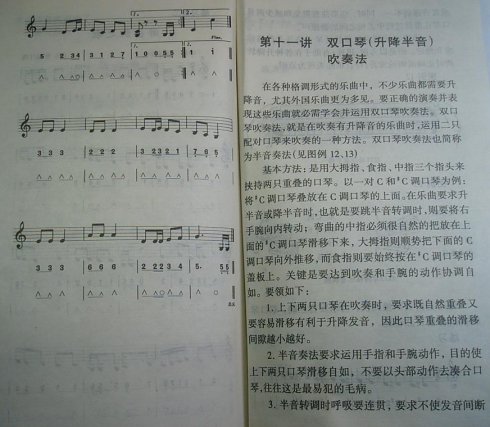 1.
2.
Fine.
5 2 234 3 1 2 1 0 0 5 5 2 1 i
3 3 3 5 5 5 2 2 3 4 3 2 1 7 6 5
3 3 3 6 6 6 2 2 2 3 4 5. 5 5
D.S.
第十一讲 双口琴(升降半音)
吹奏法
在各种格调形式的乐曲中，不少乐曲都需要升
降音，尤其外国乐曲更为多见。要正确的演奏并表
现这些乐曲就必需学会并运用双口琴吹奏法。双口
琴吹奏法，就是在吹奏有升降音的乐曲时，运用二只
配对口琴来吹奏的一种方法。双口琴吹奏法也简称
为半音奏法(见图例12、13)
基本方法：是用大拇指、食指、中指三个指头来
挟持两只重叠的口琴。以一对C和♯C调口琴为例：
将♯C调口琴叠放在C调口琴的上面。在乐曲要求升
半音或降半音时，也就是要跳半音转调时，则要将右
手腕向内转动；弯曲的中指必须很自然的把放在上
面的♯C调口琴滑移下来，大拇指则顺势把下面的C
调口琴向外推移，而食指则要始终按在♯C调口琴的
盖板上。关键是要达到吹奏和手腕的动作协调自
如。要领如下：
1.上下两只口琴在吹奏时，要求既自然重叠又
要容易滑移有利于升降发音，因此口琴重叠的滑移
间隙越小越好。
2.半音奏法要求运用手指和手腕动作，目的使
上下两只口琴滑移自如，不要以头部动作去凑合口
琴，往往这是最易犯的毛病。
3.半音转调时呼吸要连贯，要求不使发音间断